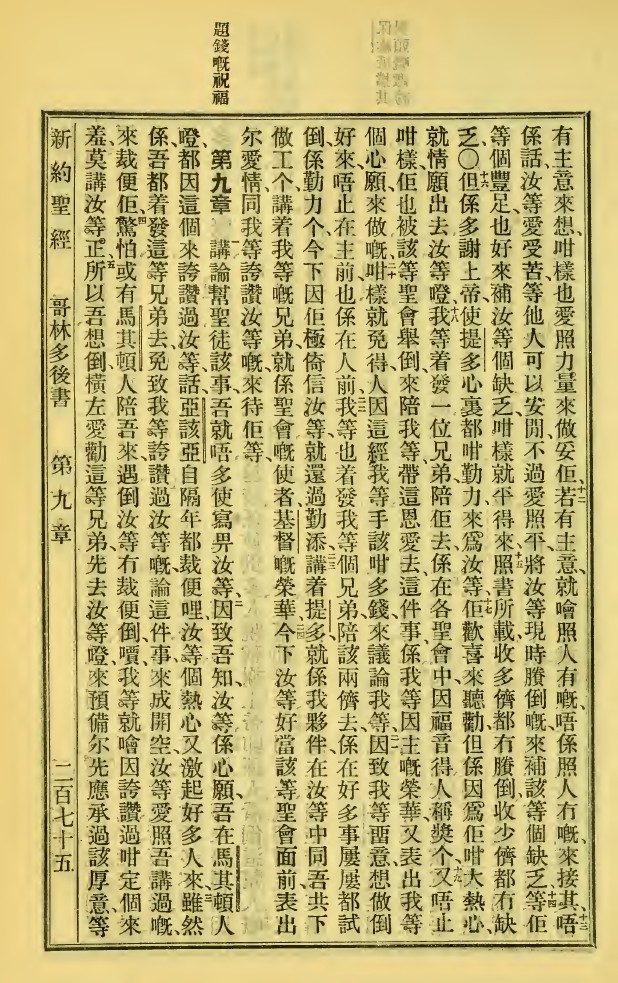 題錢嘅祝福
有主意來想、咁樣也愛照力量來做安佢、十二若有主意、就噲照人有嘅、唔係照人冇嘅、來接其、十三唔
係話汝等愛受苦、等他人可以安閒、不過愛照平、將汝等現時賸倒嘅、來補該等個缺乏、十四等佢
等個豐足、也好來補汝等個缺乏、咁樣就平得來、十五照書所載、收多儕都冇賸倒、收少儕都冇缺
乏、〇十六但係多謝上帝、使提多心裏都咁勤力來爲汝等、十七佢歡喜來聽勸、但係因爲佢咁大熱心、
就情願出去汝等噔、十八我等着發一位兄弟陪佢去、係在各聖會中、因福音得人稱獎个、十九又唔止
咁樣、佢也被該等聖會舉倒、來陪我等、帶這恩愛去、這件事係我等因主嘅榮華、又表出我等
個心願來做嘅、二十咁樣就免得人因這經我等手該咁多錢、來議論我等、二一因致我等畱意想做倒
好來、唔止在主前、也係在人前、二二我等也着發我等個兄弟陪該兩儕去、係在好多事屢屢都試
倒係勤力个、今下因佢極倚信汝等、就還過勤添、二三講着提多、就係我夥伴、在汝等中同吾共下
做工个、講着我等嘅兄弟、就係聖會嘅使者、基督嘅榮華、二四今下汝等好當該等聖會面前、表出
尔愛情、同我等誇讚汝等嘅、來待佢等、
第九章 講論幫聖徒該事、吾就唔多使寫畀汝等、二因致吾知汝等係心願、吾在馬其頓人
噔、都因這個來誇讚過汝等、話亞該亞自隔年都裁便哩、汝等個熱心、又激起好多人來、三雖然
係吾都着發這等兄弟去、免致我等誇讚過汝等嘅論這件事來成開空、汝等愛照吾講過嘅、
來裁便、四佢驚怕或有馬其頓人陪吾來、遇倒汝等冇裁便倒、嘳我等就噲因誇讚過咁定個來
羞、莫講汝等正、五所以吾想倒橫左愛勸這等兄弟先去汝等噔、來預備尔先應承過該厚意、等
新約聖經 哥林多後書 第九章 二百七十五